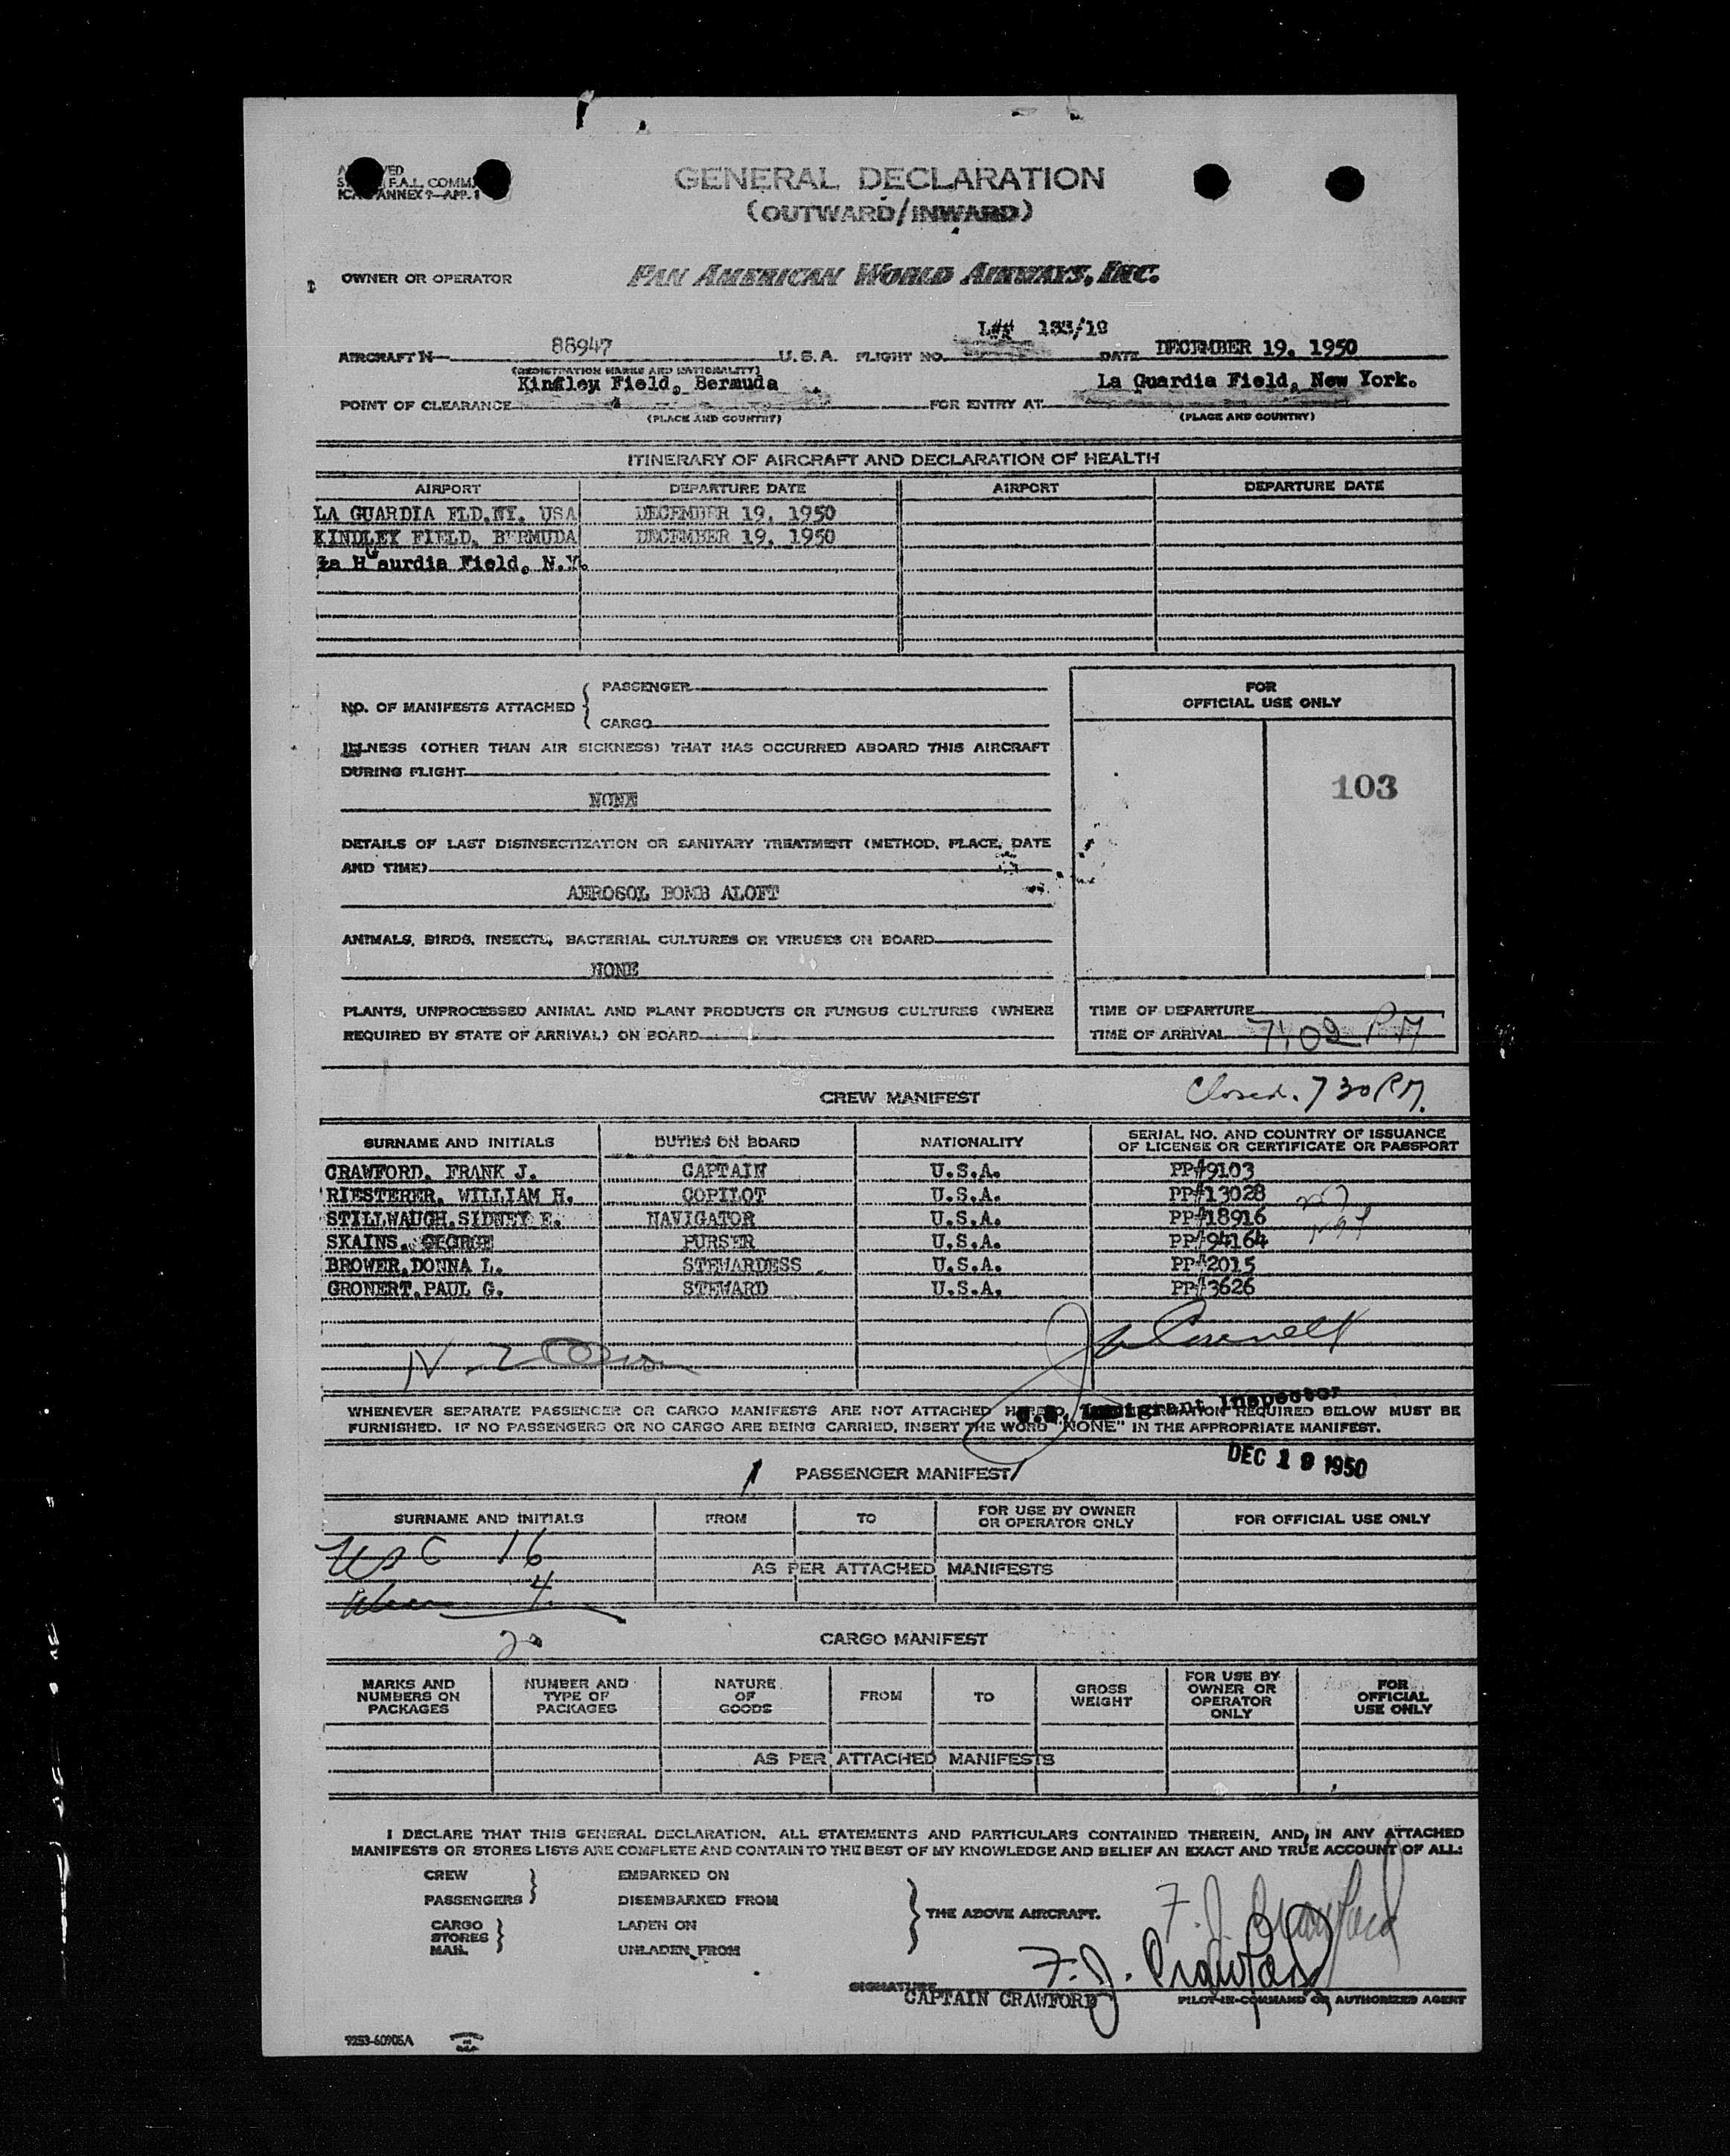 GENERAL DECLARATION
(OUTWARD/INWARD)
F.A.L. COMM.
ANNEX 9—APP. 1
OWNER OR OPERATOR PAN AMERICAN WORLD AIRWAYS, INC.
133/19
AIRCRAFT N— 88947 U.S.A. FLIGHT NO. DATE DECEMBER 19, 1950
(REGISTRATION MARKS AND NATIONALITY)
Kindley Field, Bermuda La Guardia Field, New York.
POINT OF CLEARANCE FOR ENTRY AT
(PLACE AND COUNTRY) (PLACE AND COUNTRY)
ITINERARY OF AIRCRAFT AND DECLARATION OF HEALTH
AIRPORT DEPARTURE DATE AIRPORT DEPARTURE DATE
LA GUARDIA FLD.NY. USA DECEMBER 19, 1950
KINDLEY FIELD, BERMUDA DECEMBER 19, 1950
Field, N.Y.
NO. OF MANIFESTS ATTACHED { PASSENGER
CARGO
FOR
OFFICIAL USE ONLY
ILLNESS (OTHER THAN AIR SICKNESS) THAT HAS OCCURRED ABOARD THIS AIRCRAFT
DURING FLIGHT
NONE
103
DETAILS OF LAST DISINSECTIZATION OR SANITARY TREATMENT (METHOD, PLACE, DATE
AND TIME)
AEROSOL BOMB ALOFT
ANIMALS, BIRDS, INSECTS, BACTERIAL CULTURES OR VIRUSES ON BOARD
NONE
PLANTS, UNPROCESSED ANIMAL AND PLANT PRODUCTS OR FUNGUS CULTURES (WHERE
REQUIRED BY STATE OF ARRIVAL) ON BOARD
TIME OF DEPARTURE
TIME OF ARRIVAL 7:02 PM
Closed. 7 30 PM.
CREW MANIFEST
SURNAME AND INITIALS DUTIES ON BOARD NATIONALITY SERIAL NO. AND COUNTRY OF ISSUANCE
OF LICENSE OR CERTIFICATE OR PASSPORT
CRAWFORD, FRANK J. CAPTAIN U.S.A. PP#9103
RIESTERER, WILLIAM H. COPILOT U.S.A. PP#13028
STILLWAUGH,SIDNEY E. NAVIGATOR U.S.A. PP#18916
SKAINS, GEORGE PURSER U.S.A. PP#94164
BROWER,DONNA L. STEWARDESS U.S.A. PP#2015
GRONERT,PAUL G. STEWARD U.S.A. PP#3626
Immigrant Inspector
WHENEVER SEPARATE PASSENGER OR CARGO MANIFESTS ARE NOT ATTACHED REQUIRED BELOW MUST BE
FURNISHED. IF NO PASSENGERS OR NO CARGO ARE BEING CARRIED, INSERT THE WORD "NONE" IN THE APPROPRIATE MANIFEST.
DEC 19 1950
PASSENGER MANIFEST
SURNAME AND INITIALS FROM TO FOR USE BY OWNER
OR OPERATOR ONLY FOR OFFICIAL USE ONLY
USC 16
AS PER ATTACHED MANIFESTS
4
20
CARGO MANIFEST
MARKS AND
NUMBERS ON
PACKAGES NUMBER AND
TYPE OF
PACKAGES NATURE
OF
GOODS FROM TO GROSS
WEIGHT FOR USE BY
OWNER OR
OPERATOR
ONLY FOR
OFFICIAL
USE ONLY
AS PER ATTACHED MANIFESTS
I DECLARE THAT THIS GENERAL DECLARATION, ALL STATEMENTS AND PARTICULARS CONTAINED THEREIN, AND, IN ANY ATTACHED
MANIFESTS OR STORES LISTS ARE COMPLETE AND CONTAIN TO THE BEST OF MY KNOWLEDGE AND BELIEF AN EXACT AND TRUE ACCOUNT OF ALL:
CREW EMBARKED ON
PASSENGERS DISEMBARKED FROM
THE ABOVE AIRCRAFT.
CARGO LADEN ON
STORES
MAIL UNLADEN FROM
F. J. Crawford
F. J. Crawford
SIGNATURE
CAPTAIN CRAWFORD PILOT-IN-COMMAND OR AUTHORIZED AGENT